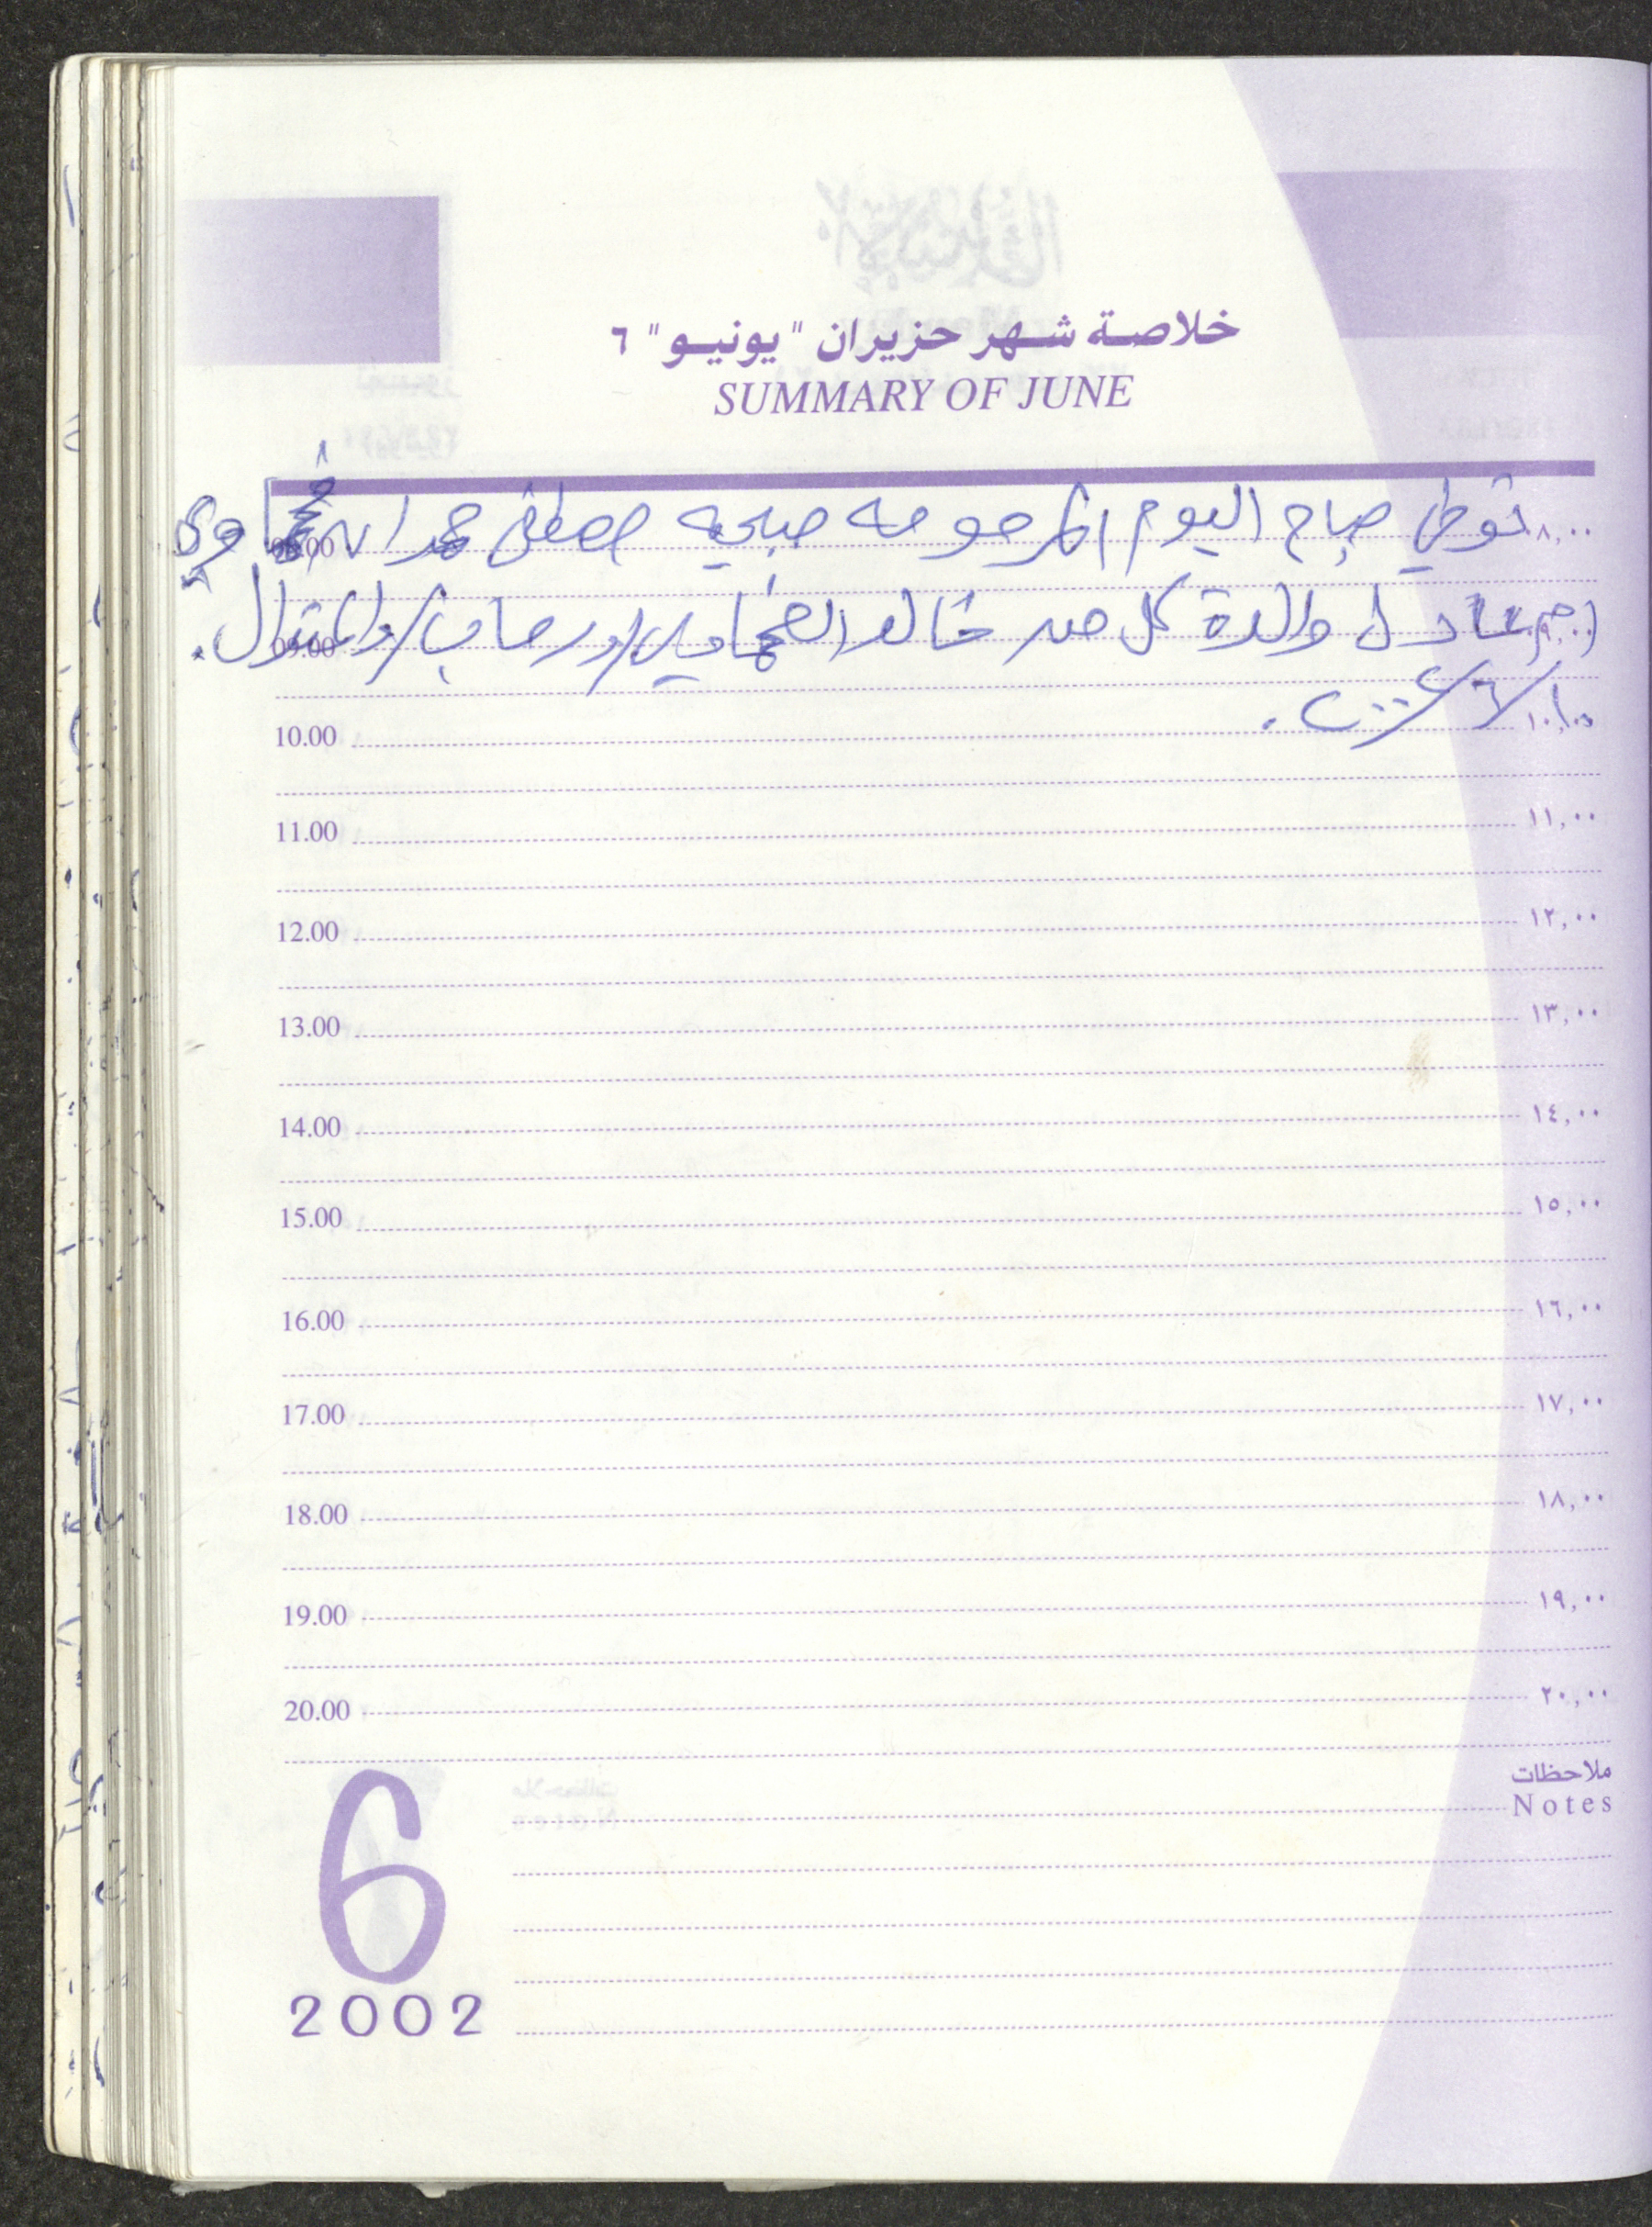 خلاصة شهر حزيران "يونيو" ٦
SUMMARY OF JUNE
٨,٠٠ توفي صباح اليوم المرحومه صبحيه مصطفى حمد وي 08.00
٩,٠٠ والدة كل من خالد 09.00
١٠,٠٠ ١٠/٦/٢٠٠٢. 10.00
11.00 ١١,٠٠
12.00 ١٢,٠٠
13.00 ١٣,٠٠
14.00 ١٤,٠٠
15.00 ١٥,٠٠
16.00 ١٦,٠٠
17.00 ١٧,٠٠
18.00 ١٨,٠٠
19.00 ١٩,٠٠
20.00 ٢٠,٠٠
ملاحظات
Notes
6
2002